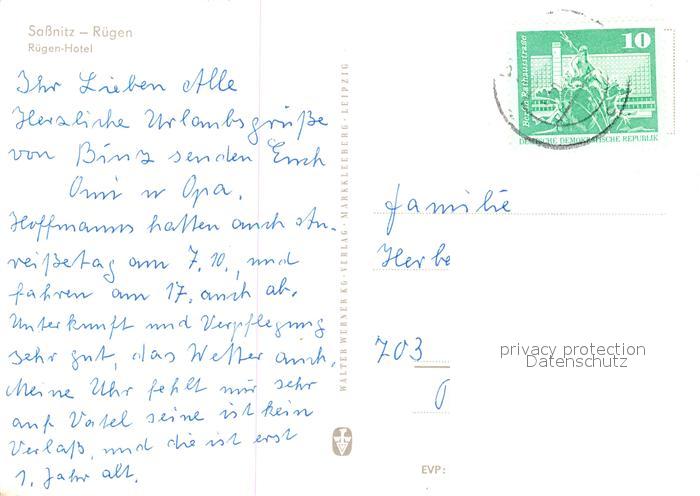 Saßnitz – Rügen
Rügen-Hotel
Ihr Lieben Alle
Herzliche Urlaubsgrüße
von Binz senden Euch
Omi u Opa.
Hoffmanns hatten auch An-
reißetag am 7.10., und
fahren am 17. auch ab.
Unterkunft und Verpflegung
sehr gut, das Wetter auch.
Meine Uhr fehlt mir sehr
auf Vatel seine ist kein
Verlaß, und die ist erst
1. Jahr alt.
WALTER WERNER KG · VERLAG · MARKKLEEBERG · LEIPZIG
10
Berlin Rathausstraße
DEUTSCHE DEMOKRATISCHE REPUBLIK
Familie
Herbe
703
privacy protection
Datenschutz
EVP: